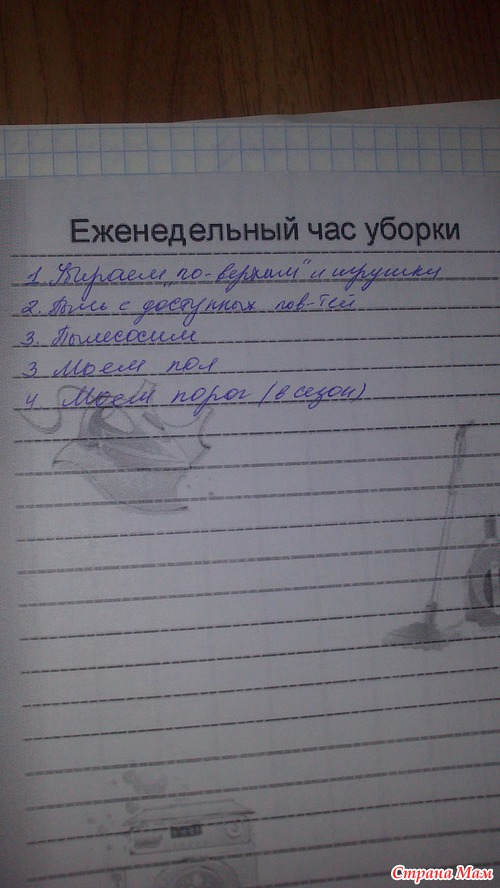 Еженедельный час уборки
1. Убираем "по-верхам" и игрушки
2. Пыль с доступных пов-тей
3. Пылесосим
3 Моем пол
4 Моем порог (в сезон)
Страна Мам